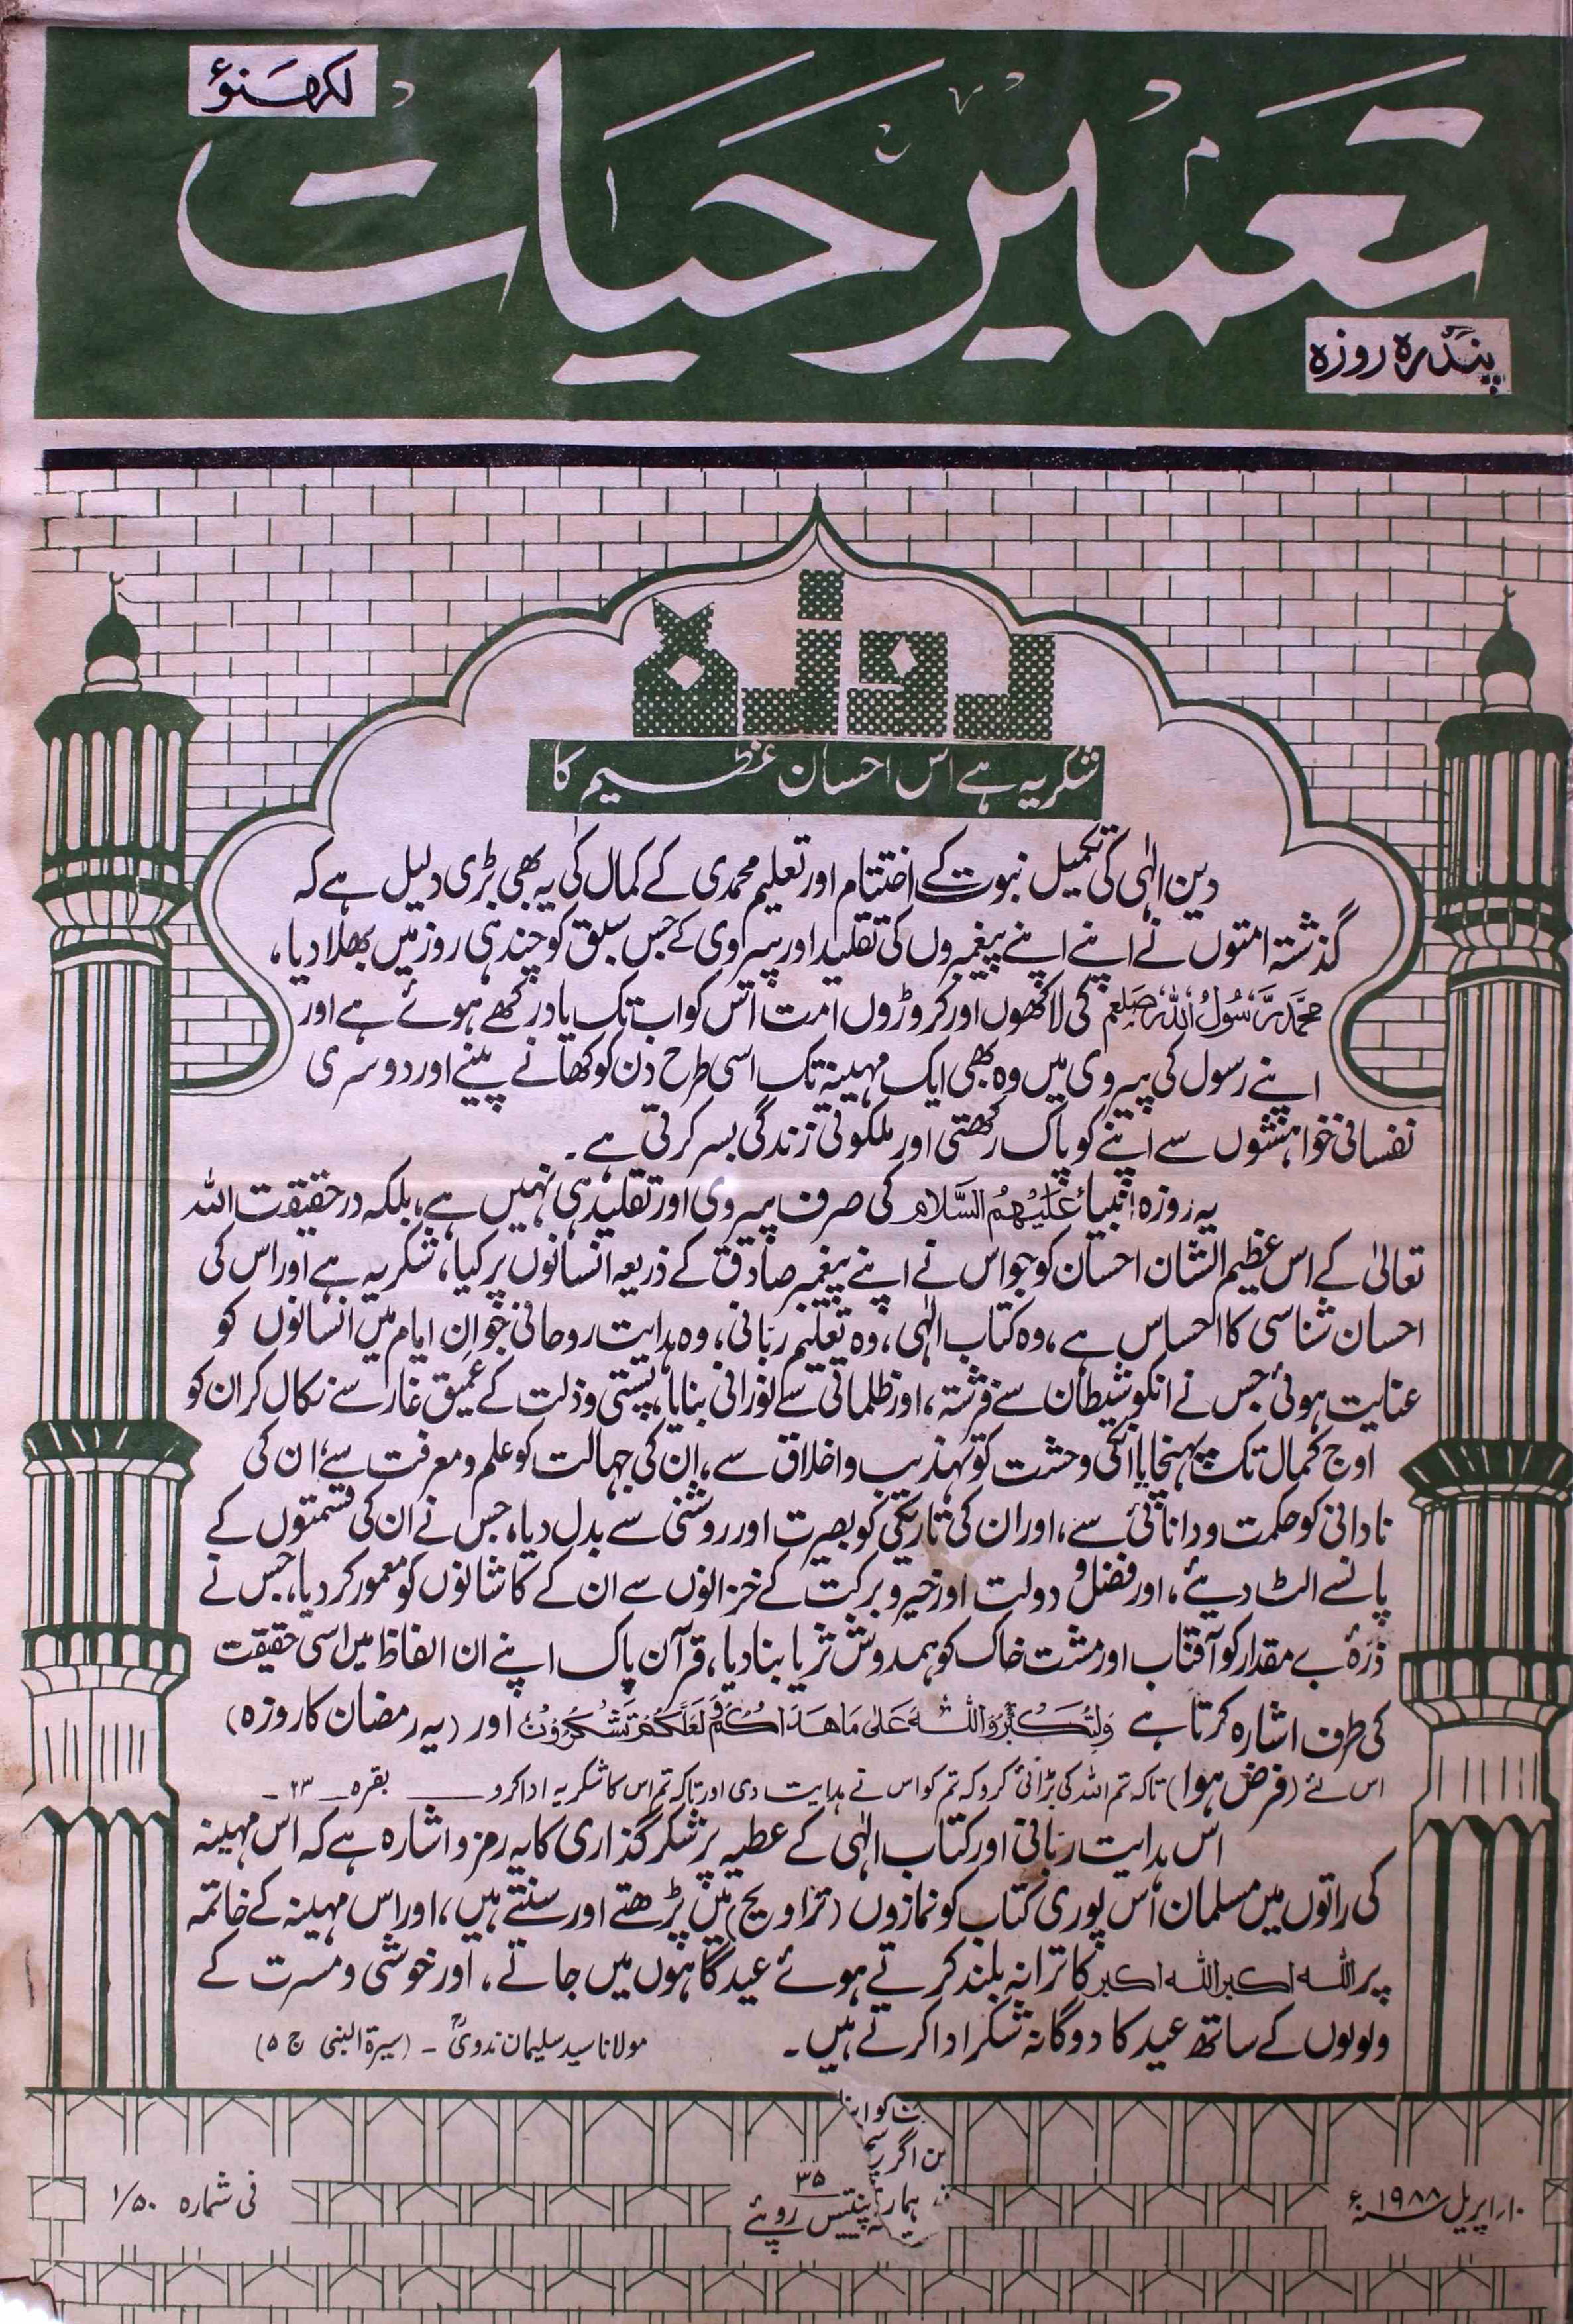 لکھنؤ
تعمیر حیات
پندرہ روزہ
روزہ
شکریہ ہے اس احسان عظیم کا
دین الٰہی کی تکمیل نبوت کے اختتام اور تعلیم محمدی کے کمال کی یہ بھی بڑی دلیل ہے کہ
گذشتہ امتوں نے اپنے اپنے پیغمبروں کی تقلید اور پیروی کے جس سبق کو چند ہی روز میں بھلا دیا،
محمد رسول اللہ صلعم کی لاکھوں اور کروڑوں امت اس کو اب تک یاد رکھے ہوئے ہے اور
اپنے رسول کی پیروی میں وہ بھی ایک مہینہ تک اسی طرح دن کو کھانے پینے اور دوسری
نفسانی خواہشوں سے اپنے کو پاک رکھتی اور ملکوتی زندگی بسر کرتی ہے۔
یہ روزہ انبیاء علیہم السلام کی صرف پیروی اور تقلید ہی نہیں ہے، بلکہ درحقیقت اللہ
تعالیٰ کے اس عظیم الشان احسان کو جو اس نے اپنے پیغمبر صادق کے ذریعہ انسانوں پر کیا، شکریہ ہے اور اس کی
احسان شناسی کا احساس ہے، وہ کتاب الٰہی، وہ تعلیم ربانی، وہ ہدایت روحانی جو ان ایام میں انسانوں کو
عنایت ہوئی جس نے انکو شیطان سے فرشتہ، اور ظلمانی سے نورانی بنایا، پستی و ذلت کے عمیق غار سے نکال کر ان کو
اوج کمال تک پہنچایا انکی وحشت کو تہذیب و اخلاق سے، ان کی جہالت کو علم و معرفت سے، ان کی
نادانی کو حکمت و دانائی سے، اور ان کی تاریکی کو بصیرت اور روشنی سے بدل دیا، جس نے ان کی قسمتوں کے
پانسے الٹ دیئے، اور فضل و دولت اور خیر و برکت کے خزانوں سے ان کے کاشانوں کو معمور کر دیا، جس نے
ذرۂ بے مقدار کو آفتاب اور مشت خاک کو ہمدوش ثریا بنا دیا، قرآن پاک اپنے ان الفاظ میں اسی حقیقت
کی طرف اشارہ کرتا ہے وَلِتُكَبِّرُوا اللّٰهَ عَلٰى مَا هَدَاكُمْ وَلَعَلَّكُمْ تَشْكُرُوْنَ اور (یہ رمضان کا روزہ)
اس لئے (فرض ہوا) تاکہ تم اللہ کی بڑائی کرو کہ تم کو اس نے ہدایت دی اور تاکہ تم اس کا شکریہ ادا کرو ــــــ بقرہ ــ ۲۳ ـ
اس ہدایت ربانی اور کتاب الٰہی کے عطیہ پر شکر گذاری کا یہ رمز و اشارہ ہے کہ اس مہینہ
کی راتوں میں مسلمان اس پوری کتاب کو نمازوں (تراویح) میں پڑھتے اور سنتے ہیں، اور اس مہینہ کے خاتمہ
پر اللہ اکبر اللہ اکبر کا ترانہ بلند کرتے ہوئے عید گاہوں میں جاتے، اور خوشی و مسرت کے
ولولوں کے ساتھ عید کا دوگانہ شکر ادا کرتے ہیں۔
مولانا سید سلیمان ندویؒ ـ (سیرۃ النبی ج ۵)
۱۰؍ اپریل ۱۹۸۸ء
۳۵
پینتیس روپئے
فی شمارہ ۱/۵۰